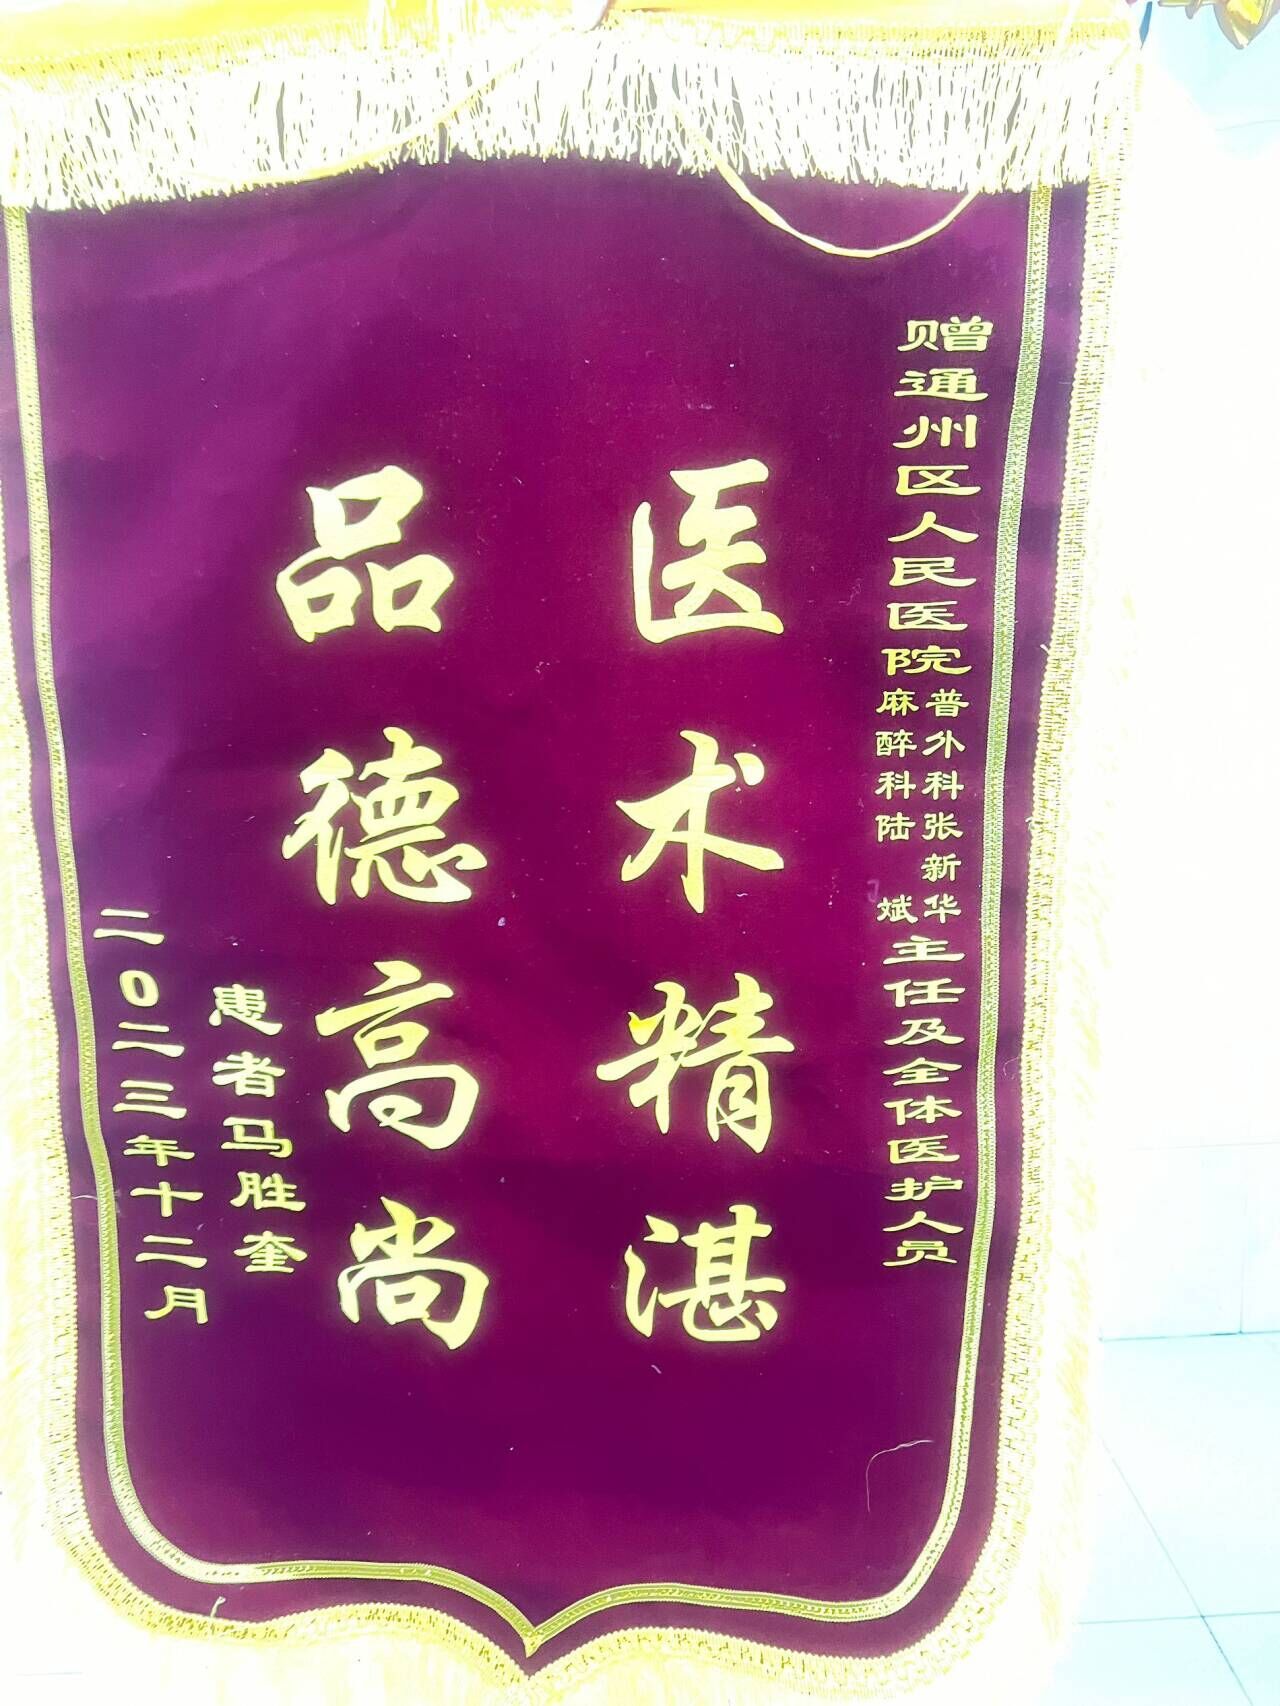 赠通州区人民医院
普外科张新华
麻醉科陆斌
主任及全体医护人员
医术精湛
品德高尚
患者马胜奎
二0二三年十二月